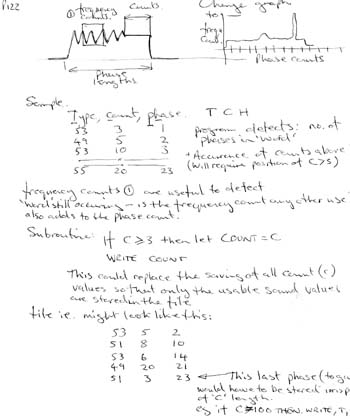 P122
① frequency counts.
Counts.
Change graph
to
freq
Coun.
Phase lengths
Phase counts
Sample.
Type, count, phase. T C H
53 3 1
49 5 2
53 10 3
55 20 23
program detects: no. of
phases in 'word'
+ Occurence of counts above
(Will require position of C>5)
frequency counts ① are useful to detect
'word still occuring' – is the frequency count any other use
also adds to the phase count.
Subroutine: If C≥3 then let COUNT = C
WRITE COUNT
This could replace the saving of all count (c)
values so that only the usable sound values
are stored in the file
file ie. might look like this:
53 5 2
51 8 10
53 6 14
49 20 21
51 3 23 ← This last phase (to gi
would have to be stored
of 'C' length.
eg if C≠100 THEN. WRITE, T,